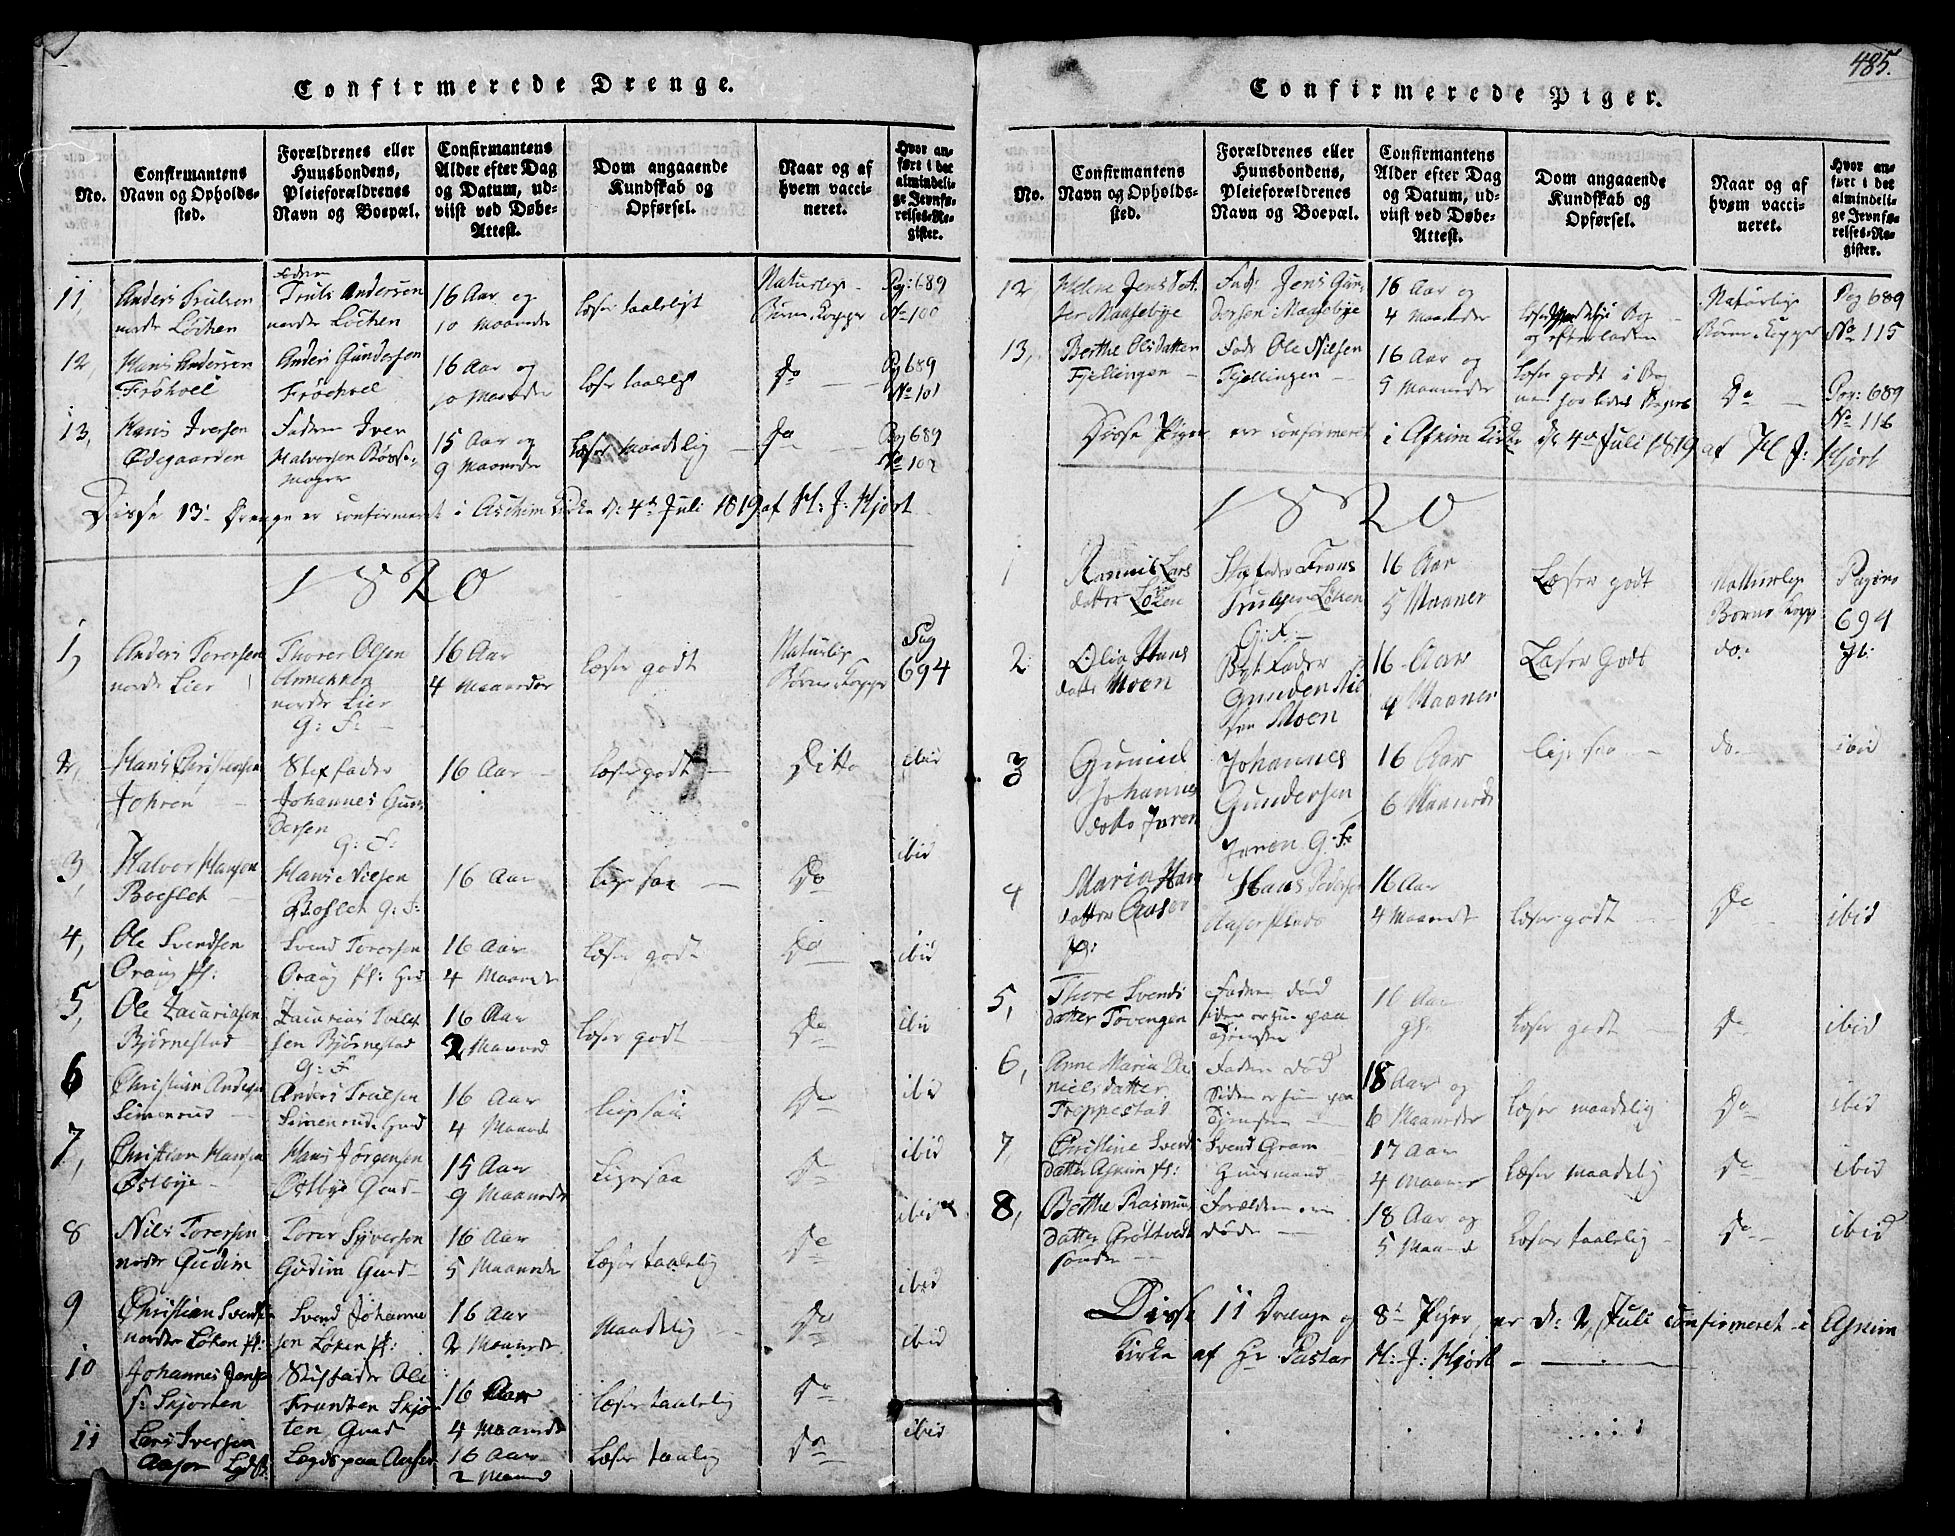 485.
Confirmerede Drenge.
No.
Confirmantens
Navn og Opholds-
sted.
Forældrenes eller
Huusbondens,
Pleieforældrenes
Navn og Boepæl.
Confirmantens
Alder efter Dag
og Datum, ud-
viist ved Døbe-
Attest.
Dom angaaende
Kundskab og
Opførsel.
Naar og af
hvem vacci-
neret.
Hvor an-
ført i det
almindeli-
ge Jevnfø-
relses-Re-
gister.
11, Anders Trulsen
nordr Löchen
Faderen
Truls Andersen
nordre Löchen
16 Aar og
10 Maaneder
læser taaleligt
Naturlige
Börne Kopper
Pag: 689
No 100
12, Hans Andersen
Fröhoel
Anders Gundersen
Fröehoel
16 Aar og
10 Maaneder
læser taaleligt
Do
Pag 689
No 101
13, Hans Iversen
Ödegaarden
Faderen Iver
Halvorsen Bösse-
mager
15 Aar og
9 Maaneder
læser maadelig
Do
Pag 689
No 102
Disse 13 Drenge er confirmeret i Aschim Kirke d: 4de Juli 1819 af H: J: Hjort
1820
1, Anders Torersen
nordre Lier
Thorer Olsen
nordre Lier
G: F:
16 Aar
4 Maaneder
læser godt
Naturlige
Börne Kopper
Pag
694
2, Hans Christensen
Johren
Stiffader
Johannes Gun-
dersen
G: F:
16 Aar
læser godt
Ditto
ibid
3, Halvor Hansen
Boeslet
Hans Nilsen
Boslet G: F:
16 Aar
lige saa
Do
ibid
4, Ole Svendsen
Oraug pl:
Svend Torersen
Oraug pl: Gud
16 Aar
4 Maaneder
læser godt
Do
ibid
5, Ole Zacariasen
Björnestad
Zacarias Tollef
sen Björnestad
G: F
16 Aar
2 Maaned
læser godt
Do
ibid
6 Christian Anders
Simenrud
Anders Trulsen
Simenrud Gud
16 Aar
4 Maaned
ligesaa
Do
ibid
7, Christian Hansen
Östbye
Hans Jörgensen
Östbye Gud
15 Aar
9 Maaneder
Ligesaa
Do
ibid
8 Nils Torersen
nordre Gudim
Torer Syversen
Gudim Gud
16 Aar
5 Maaneder
læser taalelig
Do
ibid
9 Christian Svendsen
nordre Löken pl:
Svend Johanne
sen Löken pl:
16 Aar
2 Maaneder
Maadelig
Do
ibid
10 Johannes Jense
s: Skjorten
Stiffader Ole
Frandsen Skjör
ten Gud
16 Aar
4 Maaneder
læser taalelig
Do
ibid
11 Lars Iversen
Aaser
Legd paa Aaser
16 Aar
2 Maaned
Læser taalelig
Do
ibid
Confirmerede Piger.
No.
Confirmantens
Navn og Opholds-
sted.
Forældrenes eller
Huusbondens,
Pleieforældrenes
Navn og Boepæl.
Confirmantens
Alder efter Dag
og Datum, ud-
viist ved Døbe-
Attest.
Dom angaaende
Kundskab og
Opførsel.
Naar og af
hvem vacci-
neret.
Hvor an-
ført i det
almindeli-
ge Jevnfø-
relses-Re-
gister.
12, Helene Jens Dat.
ter Maasebye
Fadr Jens Gun-
dersen Maasebye
16 Aar og
4 Maaneder
Naturlige
Börne Kopper
Pag 689
No 115
13, Berthe Olsdatter
Fjellingen
Fadr Ole Nilsen
Fjellingen
16 Aar og
5 Maaneder
læser godt i Bog
Do
Pag: 689
No 116
Disse Piger ere confirmeret i Askim Kirke d: 4de Juli 1819 af H J: Hjort
1820
1 Lars
datter Löken
Stiffader Frans
Trulsen Löken
G: F.
16 Aar
5 Maaner
Læser godt
Natturlige
Börne Kopp
Pagina
694
2 Olia Hans
datter Moen
Fader
Moen
16 Aar
4 Maaner
Læser Godt
do.
3 Gunild
Johannes
datter Joren
Johannes
Gundersen
Joren G: F:
16 Aar
6 Maaneder
lige saa
do.
ibid
4 Maria Han
datter Aaser
pl:
Hans Pederse
Aaser
16 Aar
4 Maaneder
læser godt
Do
ibid
5, Thore Svends
datter Tovengen
Faderen död
siden er hun paa
Tjeneste
16 Aar
læser godt
Do
ibid
6, Anne Maria Da
nielsdatter
Troppestad
Faderen död
Siden er hun paa
Tjenesten
18 Aar og
6 Maaneder
Læser maadelig
Do
ibid
7, Christine Svends
datter Askim pl:
Svend Gran
Huusmand
17 Aar
4 Maaner
læser maadelig
Do
ibid
8, Berthe Rasmus
datter Gröttvedt
söndre
Forældrene ere
döde
18 Aar og
5 Maaned
Læser taalelig
Do
ibid
Disse 11 Drenge og 8te Piger, er d: 2 Juli confirmeret i Askim
Kirke af Hr Pastor H: J: Hjort